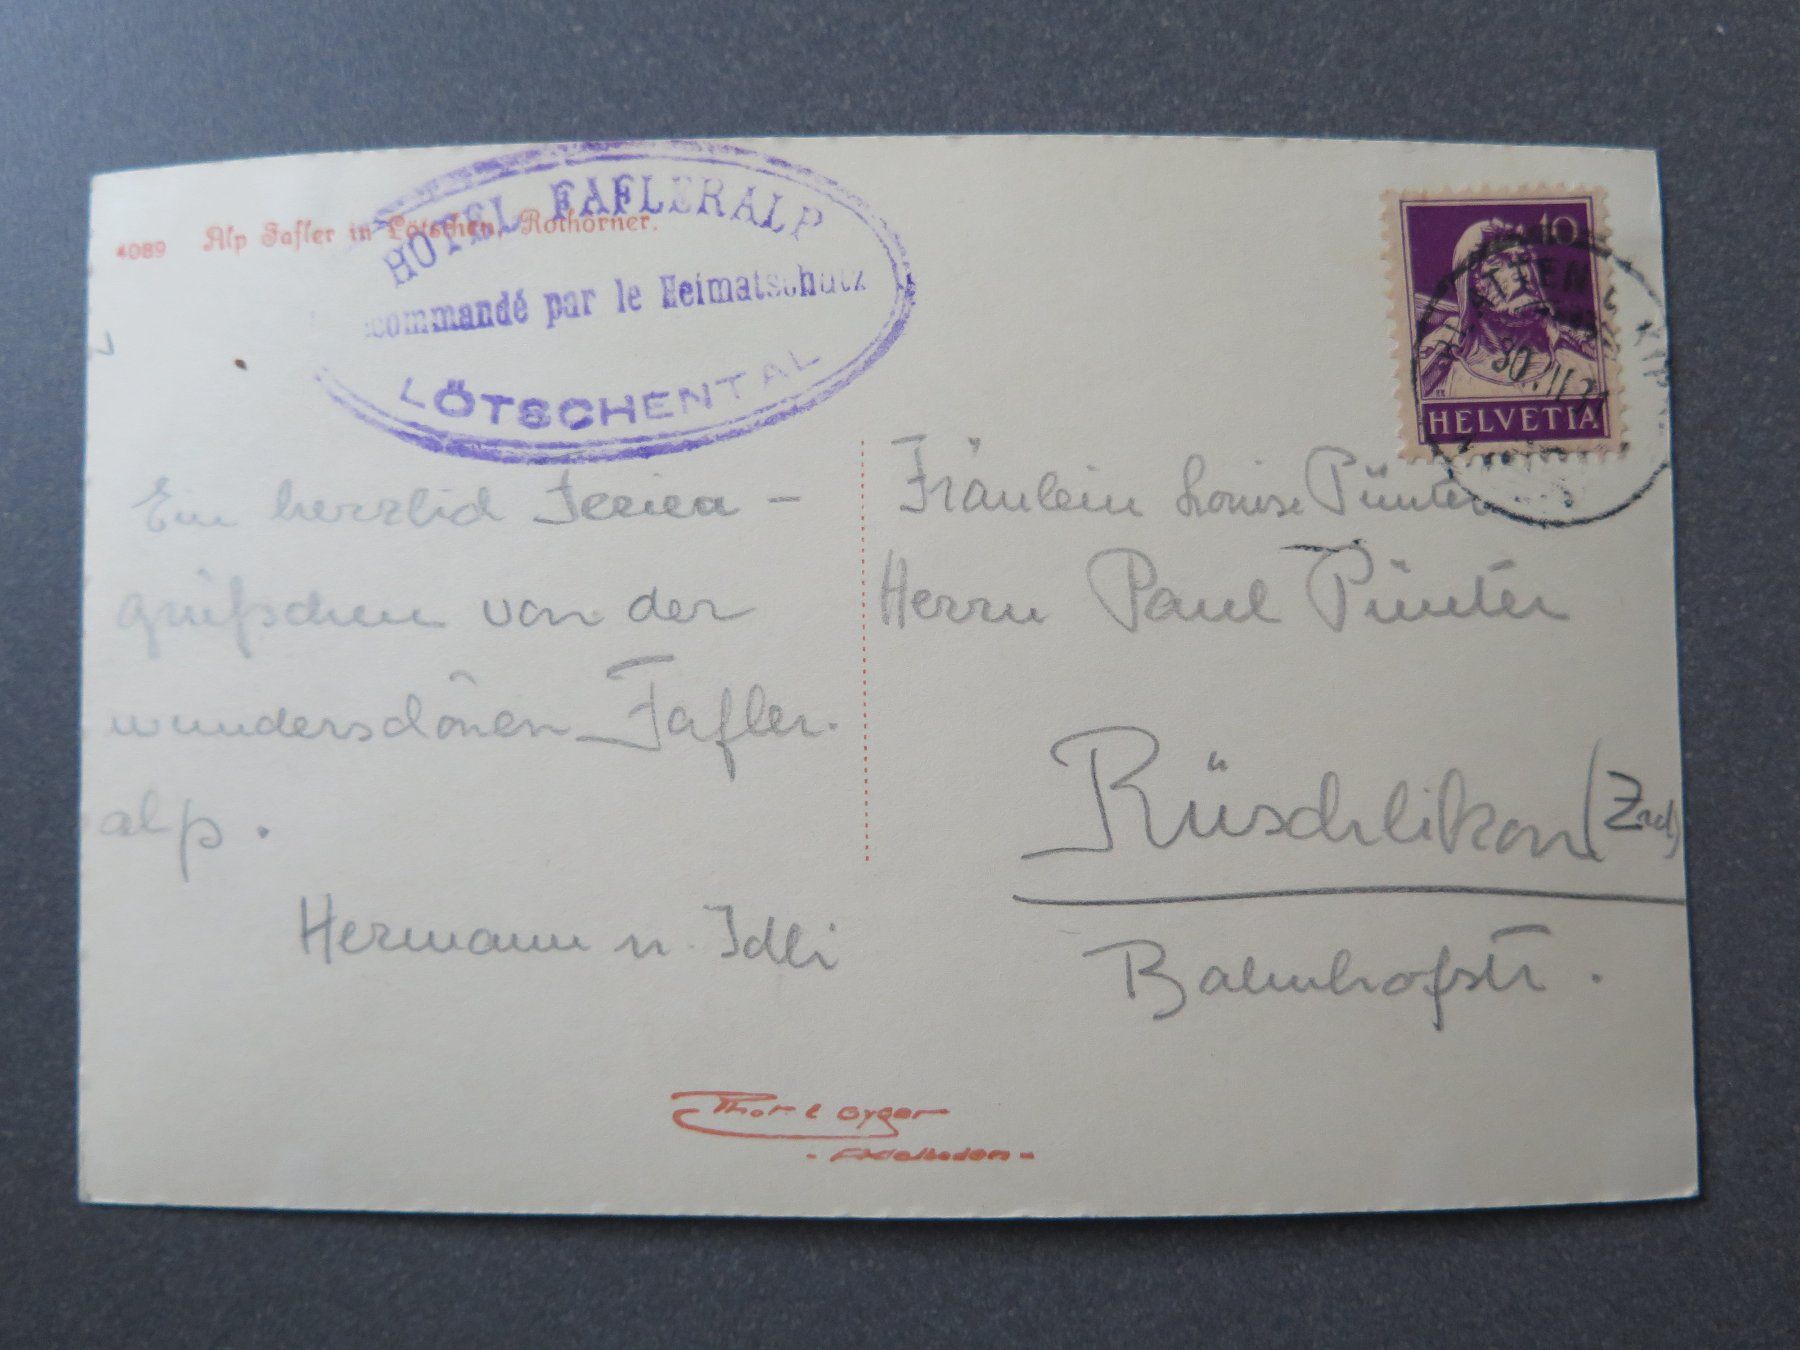 4089 Alp Fafler in Lötschen, Rothörner.
HOTEL FAFLERALP
commandé par le Heimatschutz
LÖTSCHENTAL
10
HELVETIA
Ein herzlich Ferien-
grüßchen von der
wunderschönen Fafler-
alp.
Hermann u. Idli
Fräulein Louise Pünter
Herrn Paul Pünter
Rüschlikon (Zch)
Bahnhofstr.
- Adelboden -